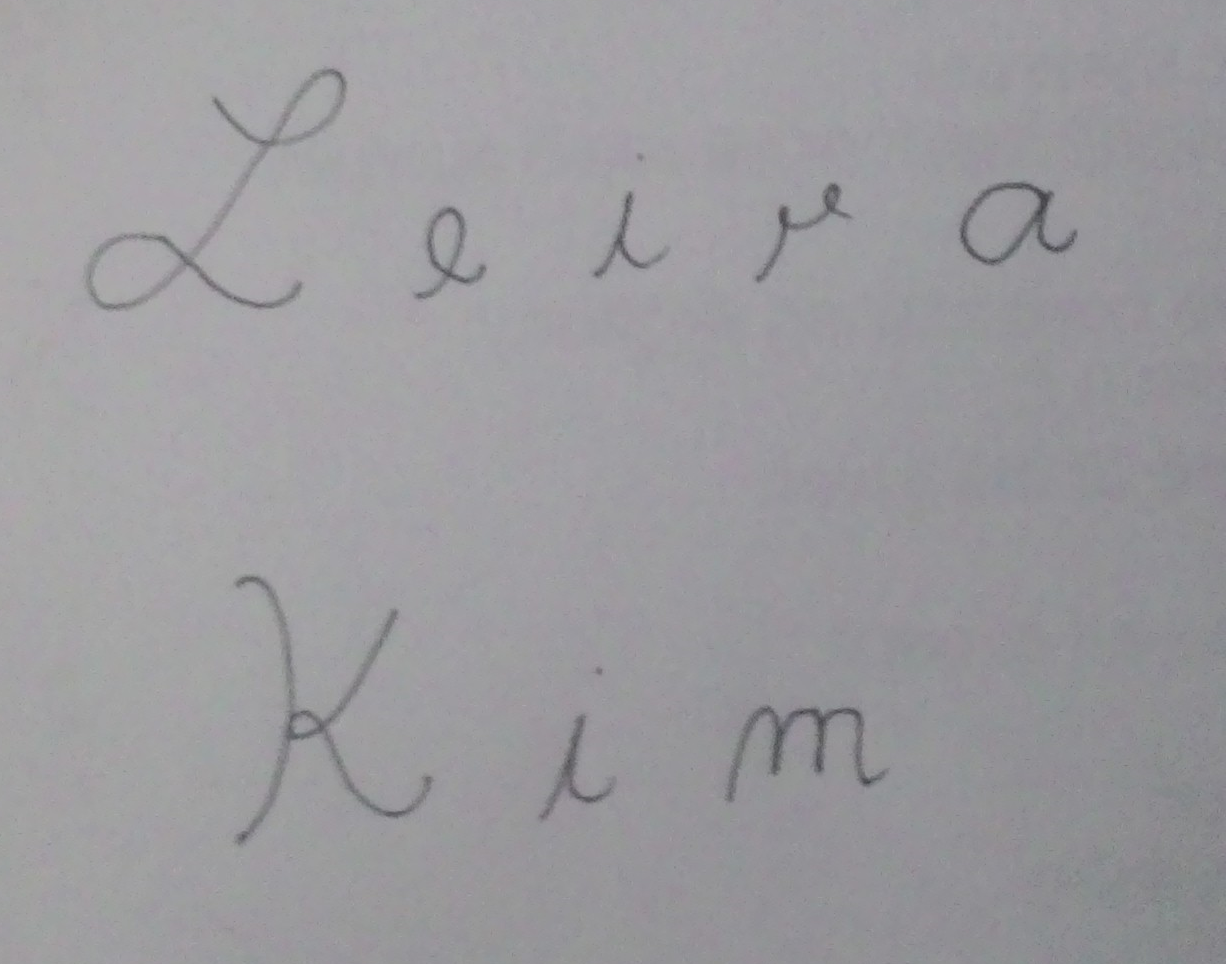 Leiva
Kim